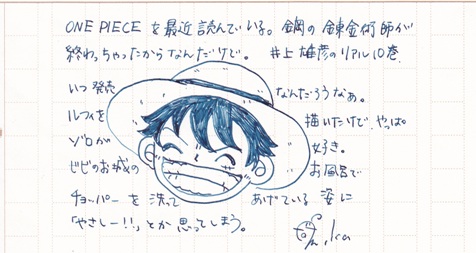 ONE PIECE を最近読んでいる。鋼の錬金術師が
終わっちゃったからなんだけど。井上雄彦のリアル10巻
いつ発売なんだろうなあ。
ルフィを描いたけど、やっぱ
ゾロが好き。
ビビのお城のお風呂で
チョッパーを洗ってあげている姿に
「やさしー!!」とか思ってしまう。